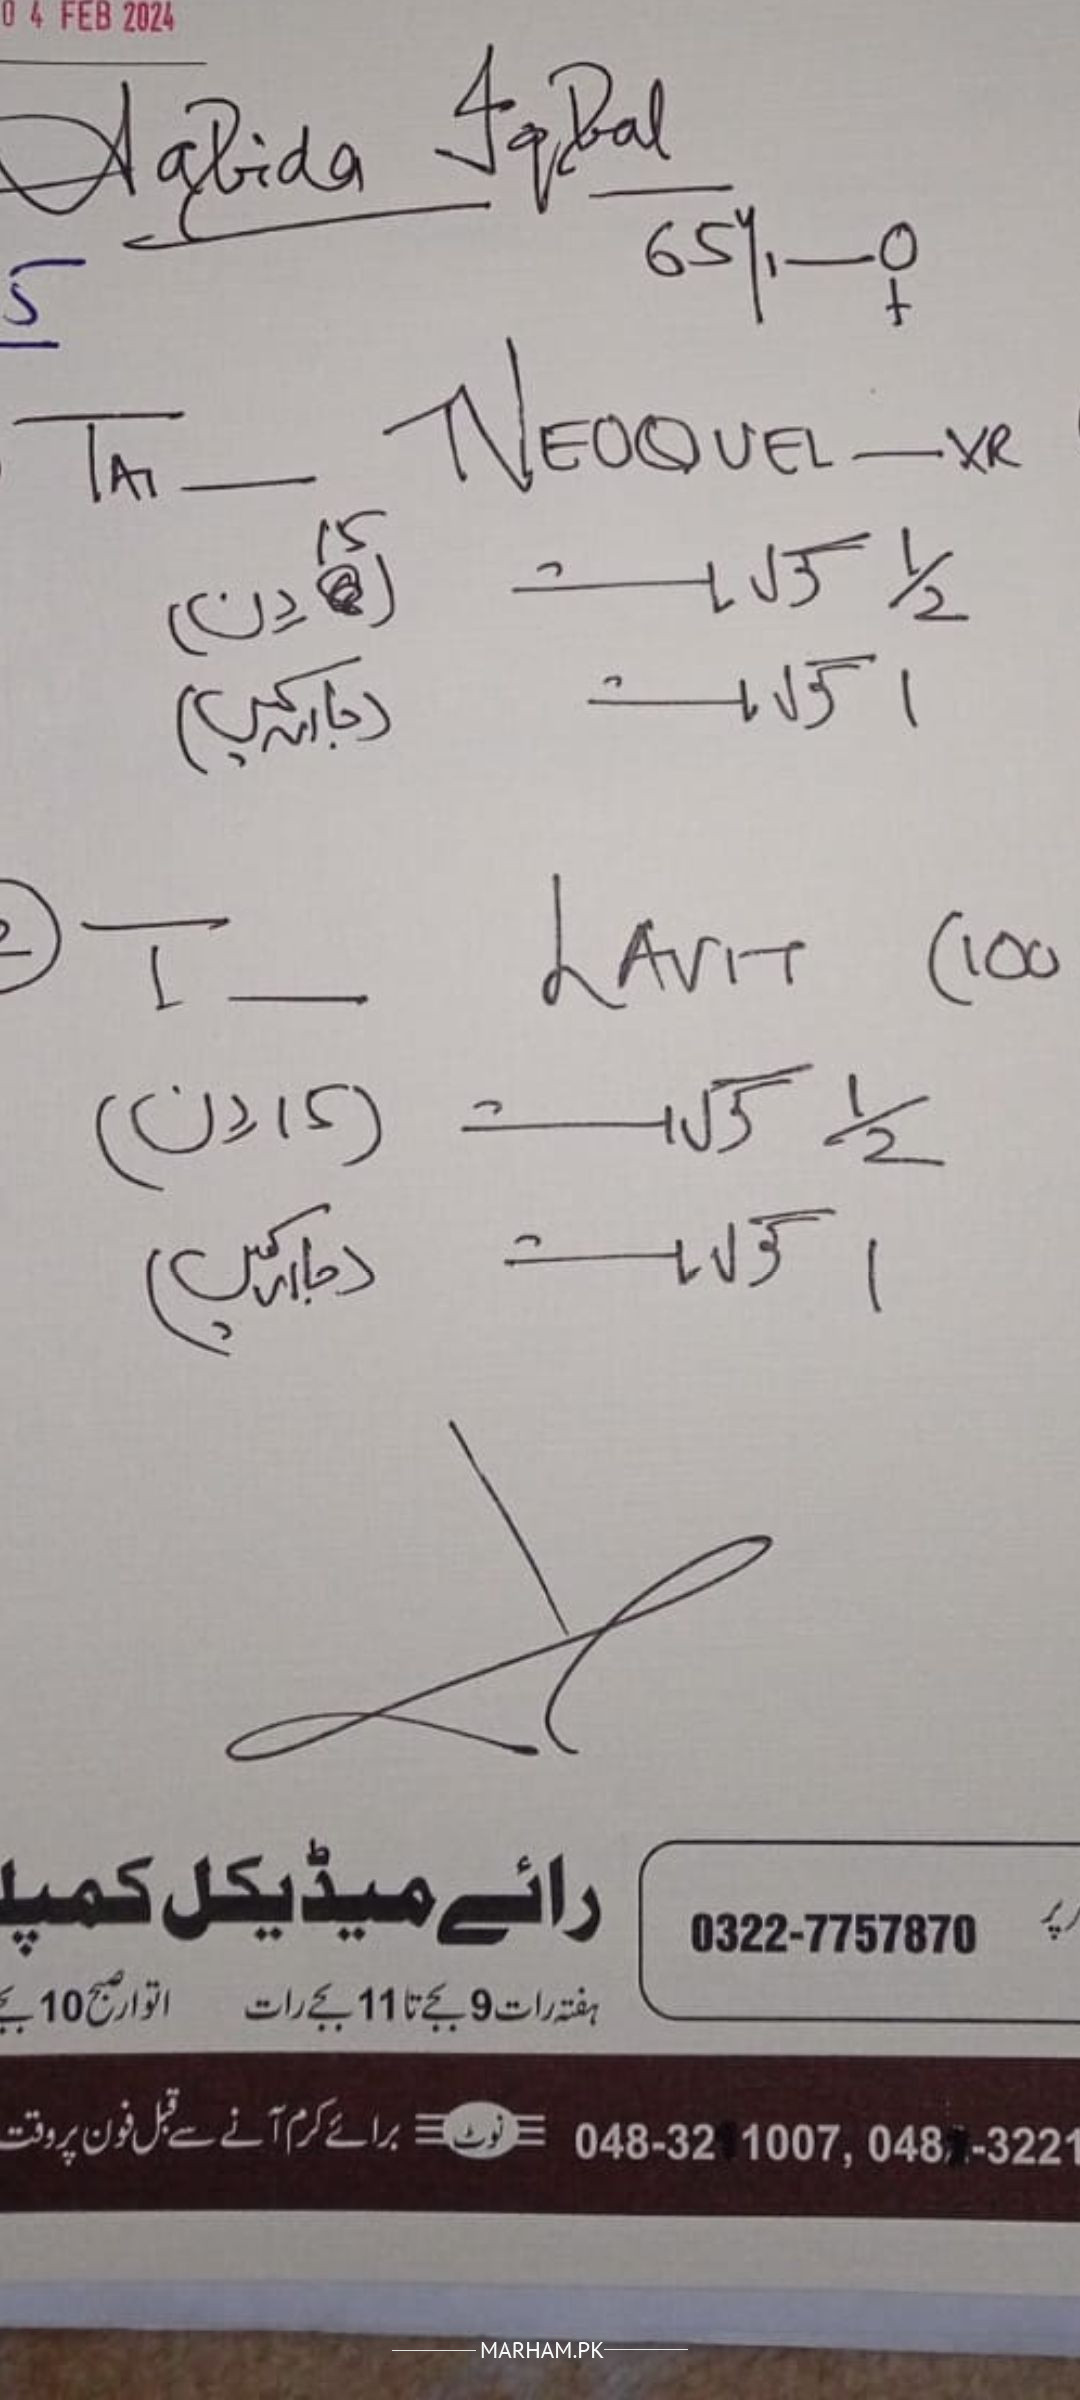 04 FEB 2024
Aabida Iqbal
65y/ — ♀
5
TAB — NEOQUEL — XR
1/2 گولی — رات (15 دن)
1 گولی — رات (جاری رکھیں)
2 T — LAVIT (100
1/2 گولی — رات (15 دن)
1 گولی — رات (جاری رکھیں)
رائے میڈیکل کمپل
0322-7757870 پر
ہفتہ رات 9 بجے تا 11 بجے رات اتوار صبح 10 بجے
048-32 1007, 048 -3221 نوٹ برائے کرم آنے سے قبل فون پر وقت
MARHAM.PK